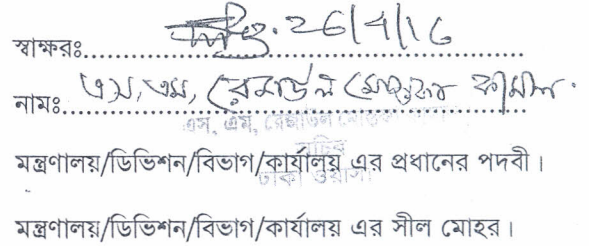 স্বাক্ষরঃ 26/4/16
নামঃ এস, এম, রেজাউল মোস্তফা কামাল।
এস, এম, রেজাউল মোস্তফা কামাল
সচিব
মন্ত্রণালয়/ডিভিশন/বিভাগ/কার্যালয় এর প্রধানের পদবী।
ঢাকা ওয়াসা
মন্ত্রণালয়/ডিভিশন/বিভাগ/কার্যালয় এর সীল মোহর।